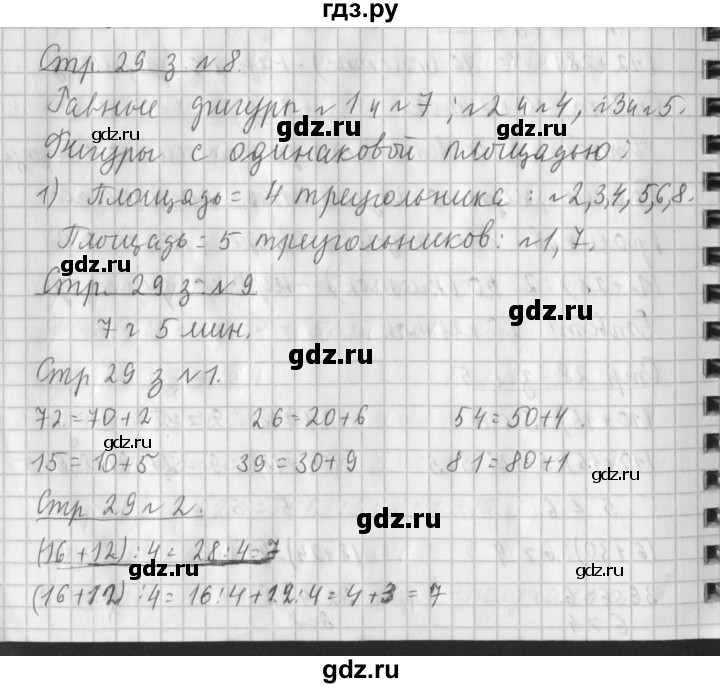 гдз.ру
Стр 29 з. №8.
Равные фигуры №1 и №7; №2 и №4, №3 и №5.
gdz.ru
gdz.ru
gdz.ru
Фигуры с одинаковой площадью:
1) Площадь = 4 треугольника: №2,3,4,5,6,8.
Площадь = 5 треугольников: №1,7.
gdz.ru
Стр. 29 з №9
7 ч 5 мин.
gdz.ru
gdz.ru
Стр 29 з №1.
72=70+2 26=20+6 54=50+4.
gdz.ru
15=10+5 39=30+9 81=80+1
gdz.ru
Стр 29 №2.
gdz.ru
(16+12):4= 28:4=7
gdz.ru
gdz.ru
(16+12):4= 16:4+12:4=4+3=7
gdz.ru